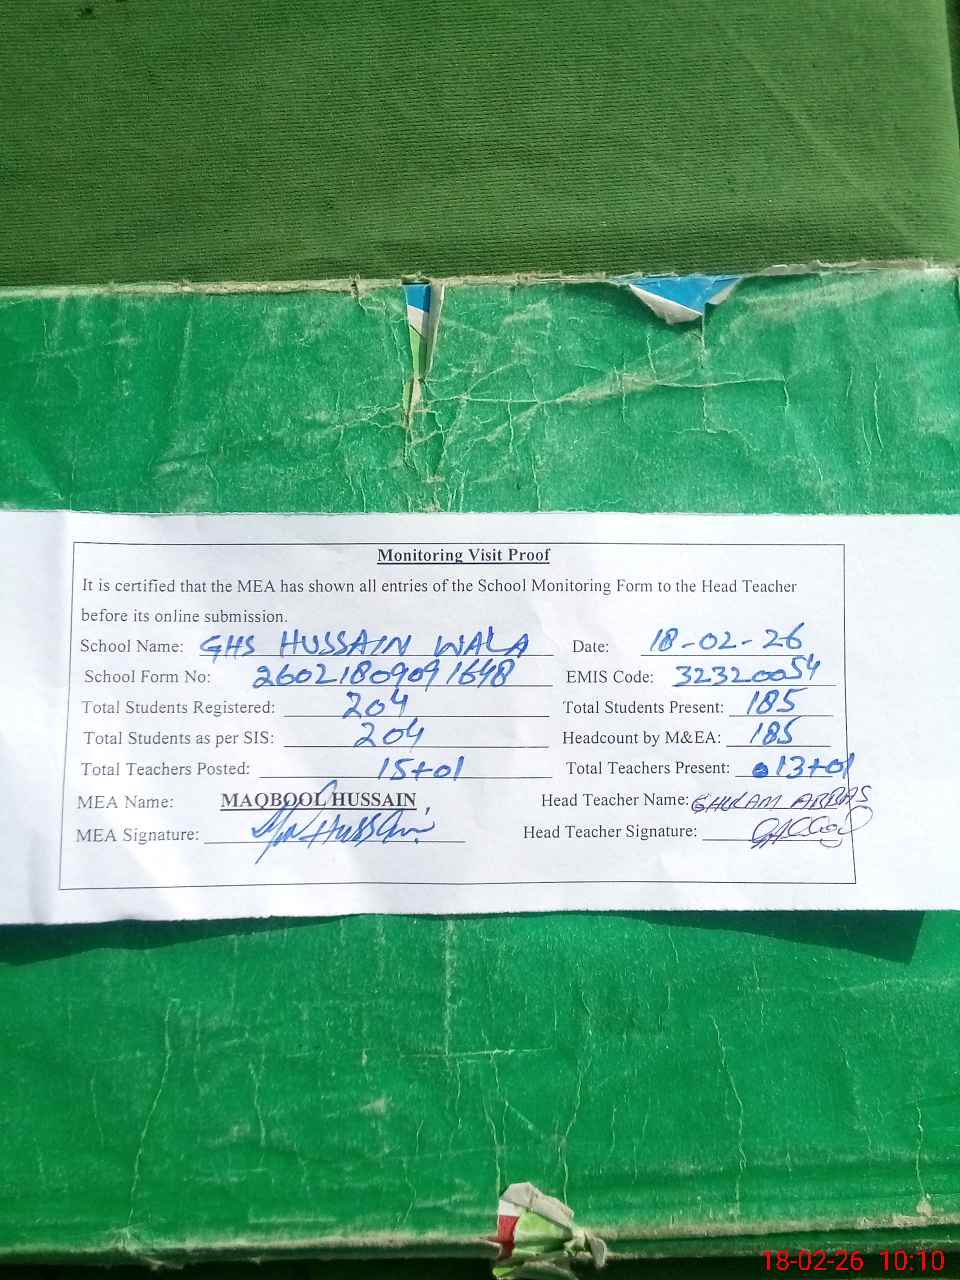 Monitoring Visit Proof
It is certified that the MEA has shown all entries of the School Monitoring Form to the Head Teacher
before its online submission.
School Name: GHS HUSSAIN WALA Date: 18-02-26
School Form No: 26021809091648 EMIS Code: 32320054
Total Students Registered: 204 Total Students Present: 185
Total Students as per SIS: 204 Headcount by M&EA: 185
Total Teachers Posted: 15+01 Total Teachers Present: 13+01
MEA Name: MAQBOOL HUSSAIN Head Teacher Name: GHULAM ABBAS
MEA Signature: Head Teacher Signature:
18-02-26 10:10